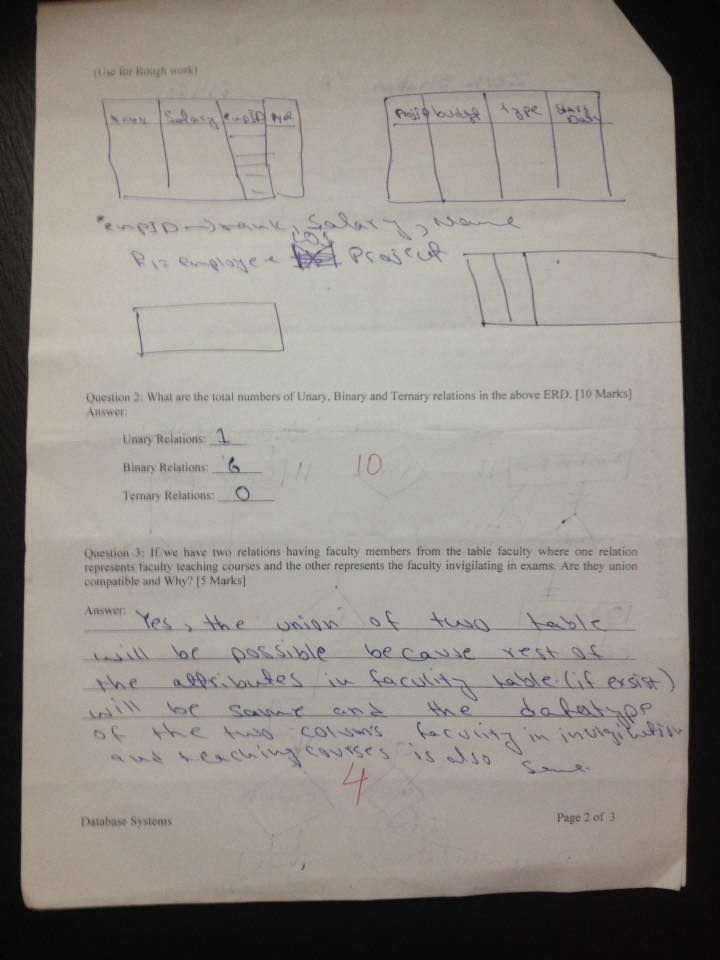 (Use for Rough work)
Name Salary empID
budget type Start
Date
empID → rank, Salary, Name
R1 = employee Project
Question 2: What are the total numbers of Unary, Binary and Ternary relations in the above ERD. [10 Marks]
Answer:
Unary Relations: 1
Binary Relations: 6
10
Ternary Relations: 0
Question 3: If we have two relations having faculty members from the table faculty where one relation
represents faculty teaching courses and the other represents the faculty invigilating in exams. Are they union
compatible and Why? [5 Marks]
Answer: Yes, the union of two table
will be possible because rest of
the attributes in faculity table (if ersist)
will be same and the datatype
of the two colums faculity in invigilation
and teaching courses is also same.
4
Database Systems
Page 2 of 3